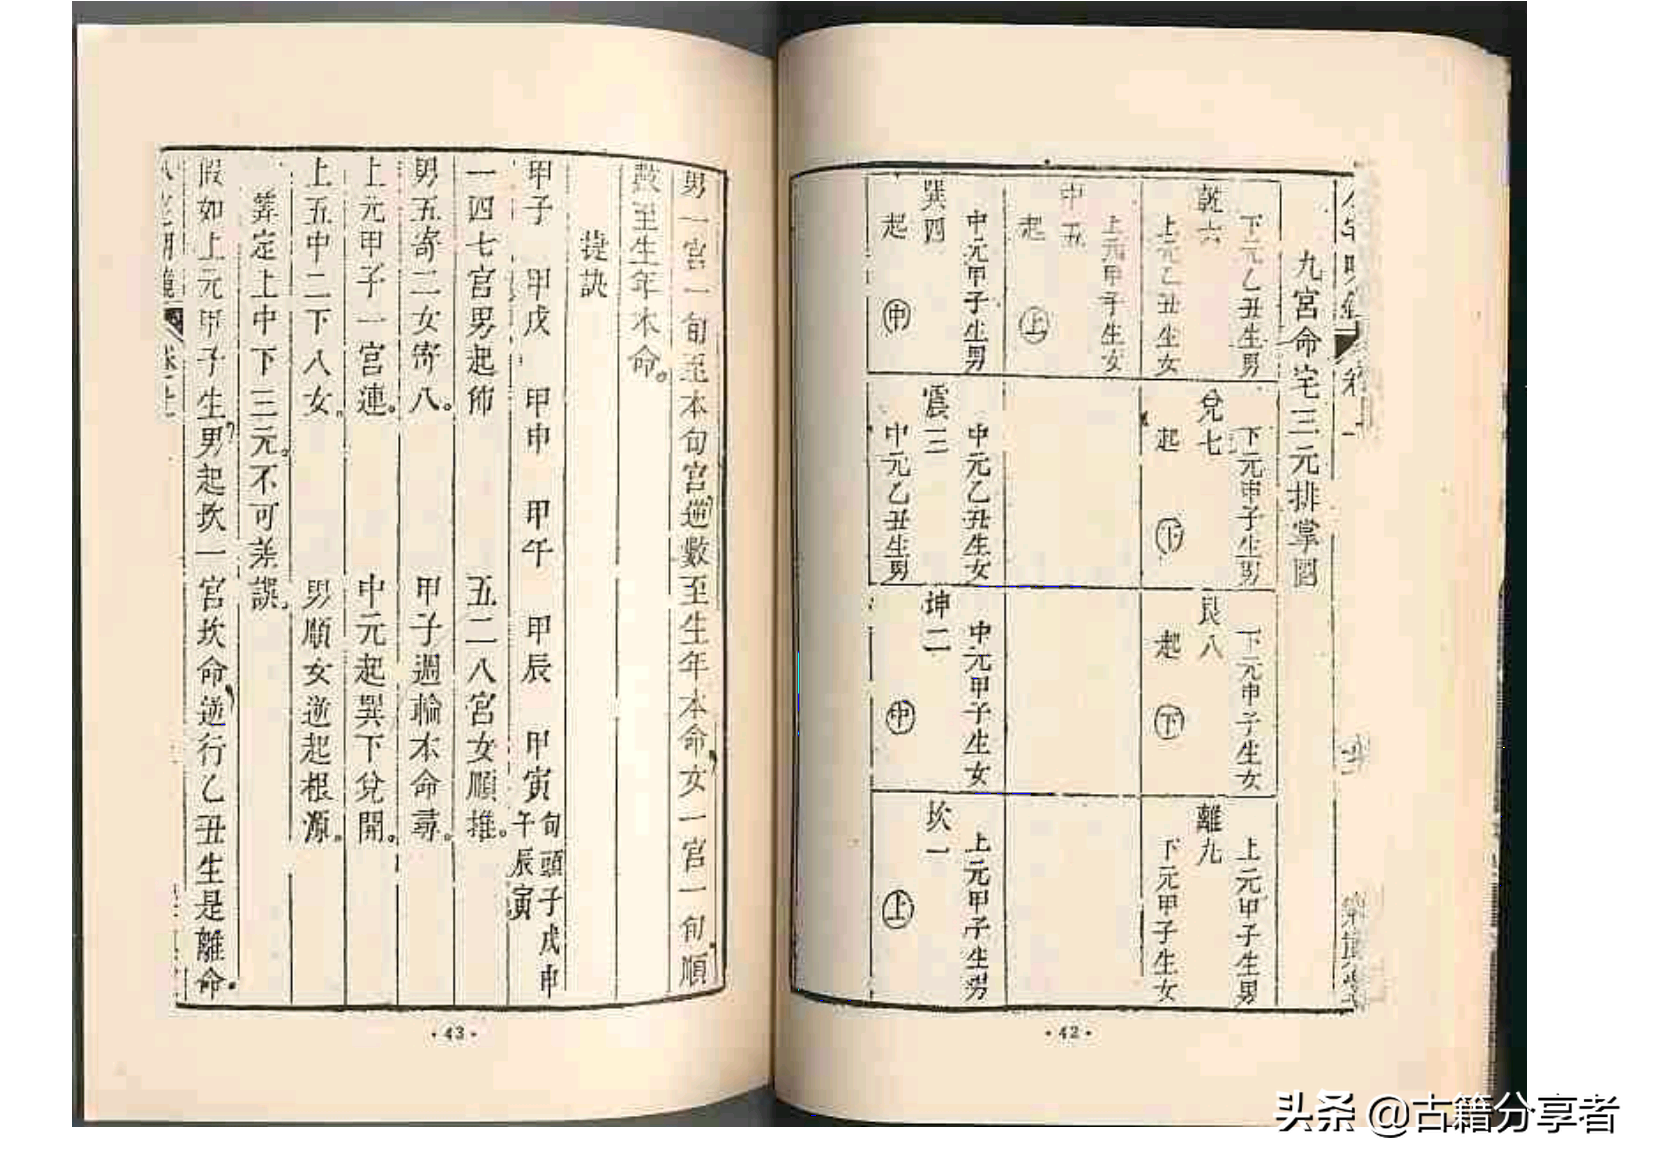 九宮命宅三元排掌圖
下元乙丑生男
乾六
上元乙丑生女
上元甲子生女
中五
起
上
中元甲子生男
巽四
起
中
下元甲子生男
兌七
起
下
中元乙丑生女
震三
中元乙丑生男
下元甲子生女
艮八
起
下
中元甲子生女
坤二
中
上元甲子生男
離九
下元甲子生女
上元甲子生男
坎一
上
·42·
男一宮一旬至本旬宮逆數至生年本命女一宮一旬順
數至生年本命。
捷訣
甲子 甲戌 甲申 甲午 甲辰 甲寅 旬頭子戌申
午辰寅
一四七宮男起佈 五二八宮女順推。
男五寄二女寄八。 甲子週輪本命尋。
上元甲子一宮連。 中元起巽下兌開。
上五中二下八女。 男順女逆起根源。
筭定上中下三元。不可差誤。
假如上元甲子生男起坎一宮坎命逆行乙丑生是離命。
·43·
头条 @古籍分享者